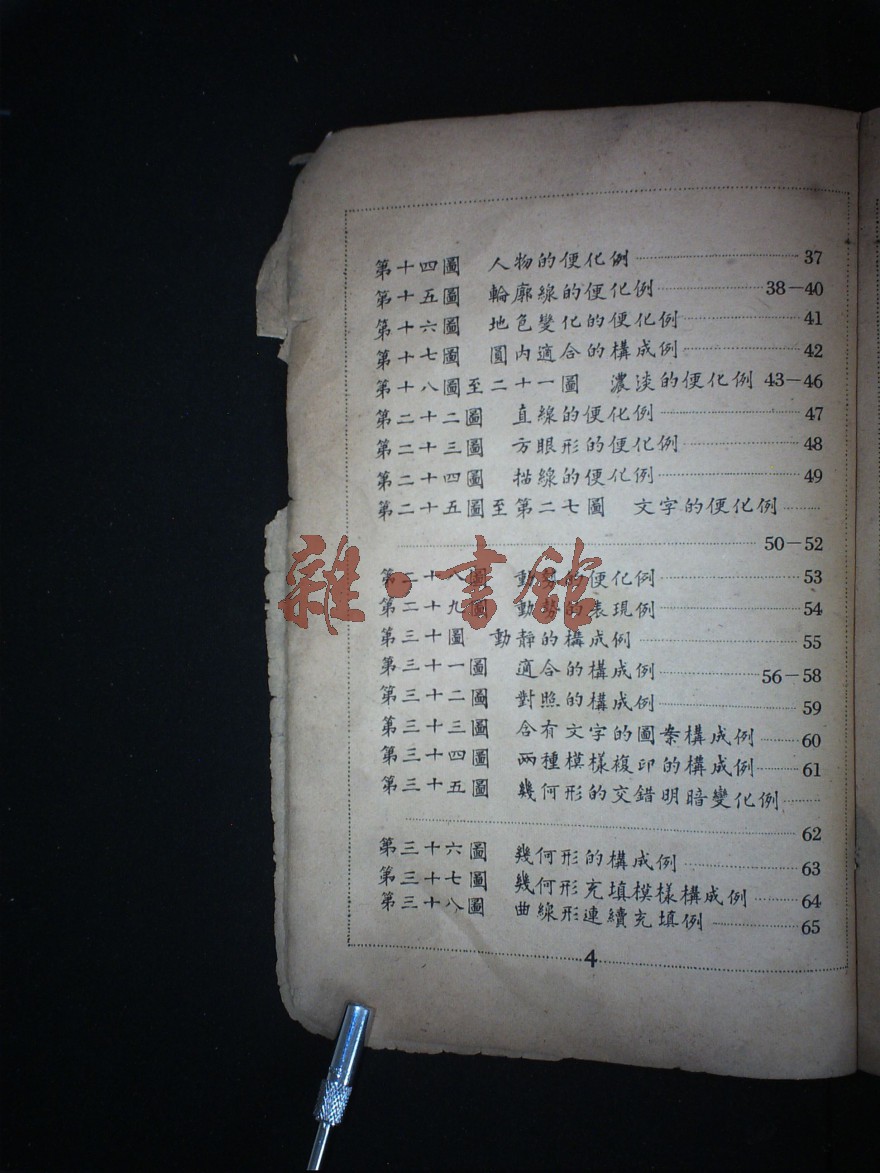 第十四圖 人物的便化例 37
第十五圖 輪廓線的便化例 38－40
第十六圖 地色變化的便化例 41
第十七圖 圓內適合的構成例 42
第十八圖至二十一圖 濃淡的便化例 43－46
第二十二圖 直線的便化例 47
第二十三圖 方眼形的便化例 48
第二十四圖 描線的便化例 49
第二十五圖至第二七圖 文字的便化例
50－52
第二十八圖 動勢的便化例 53
第二十九圖 動勢的表現例 54
第三十圖 動靜的構成例 55
第三十一圖 適合的構成例 56－58
第三十二圖 對照的構成例 59
第三十三圖 含有文字的圖案構成例 60
第三十四圖 兩種模樣複印的構成例 61
第三十五圖 幾何形的交錯明暗變化例
62
第三十六圖 幾何形的構成例 63
第三十七圖 幾何形充填模樣構成例 64
第三十八圖 曲線形連續充填例 65
4
雜·書館